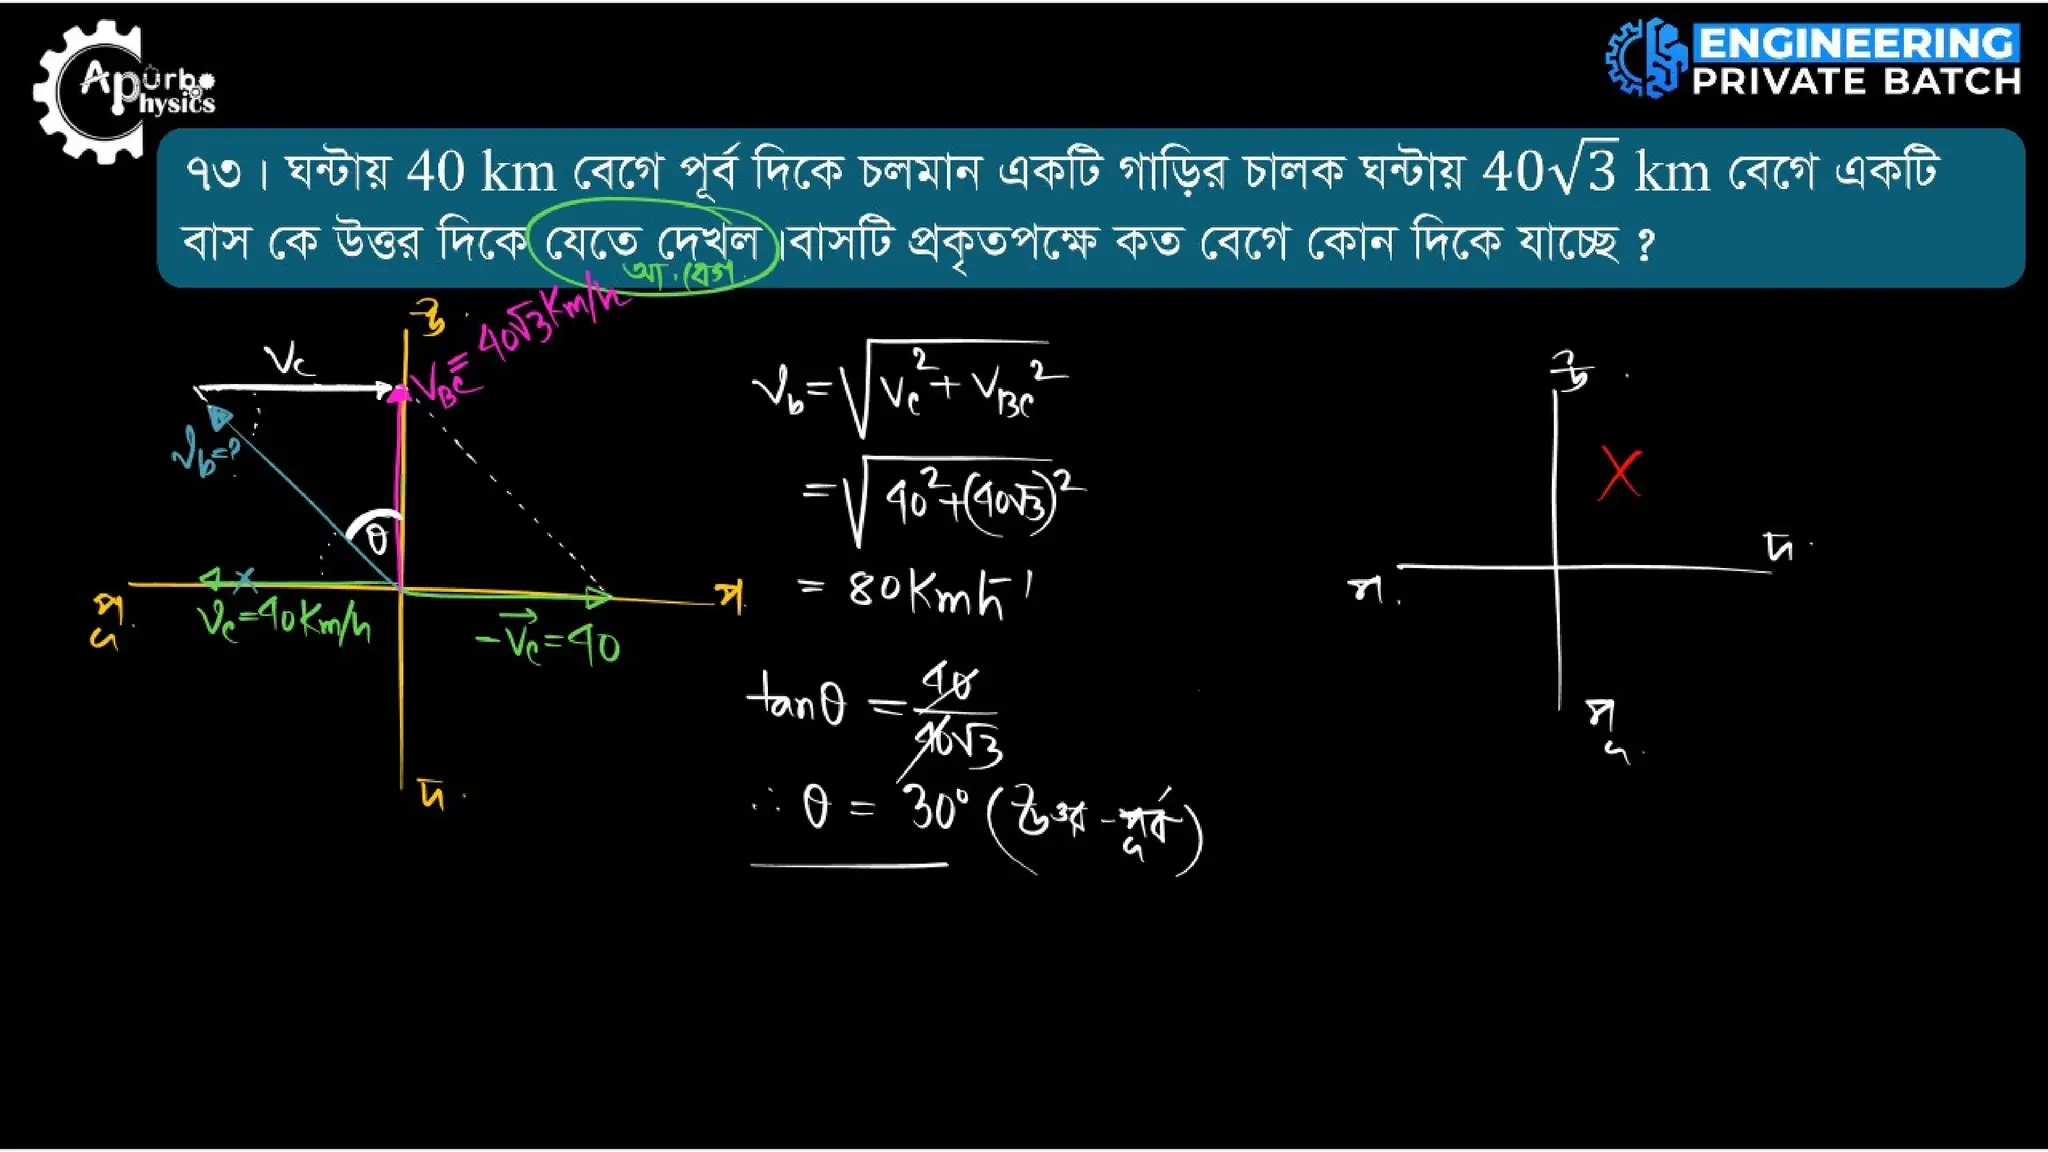 Apurbo Physics
ENGINEERING
PRIVATE BATCH
৭৩। ঘন্টায় 40 km বেগে পূর্ব দিকে চলমান একটি গাড়ির চালক ঘন্টায় 40√3 km বেগে একটি
বাস কে উত্তর দিকে যেতে দেখল।বাসটি প্রকৃতপক্ষে কত বেগে কোন দিকে যাচ্ছে ?
আ. বেগ
উ.
V_BC = 40√3 Km/h
V_C
V_b=?
θ
পূ.
প.
V_C=40 Km/h
-V_C=40
দ.
V_b = √(V_C² + V_BC²)
= √(40²+(40√3)²)
= 80 Kmh⁻¹
tanθ = 40/40√3
∴ θ = 30° (উত্তর - পূর্ব)
উ.
X
দ.
প.
পূ.